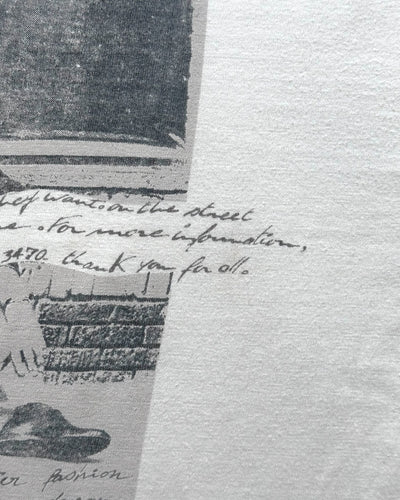 they want on the street
. for more information,
3470. thank you for all.
fashion